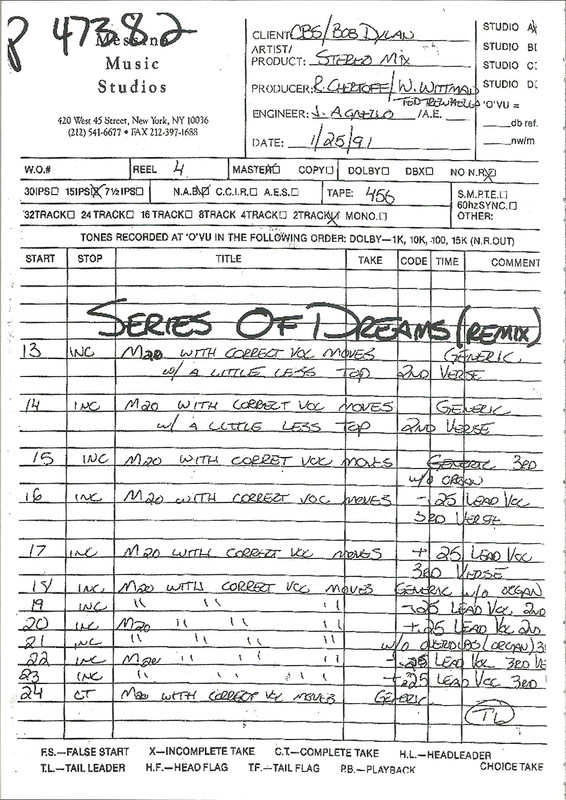 P 47382
Messina
Music
Studios
420 West 45 Street, New York, NY 10036
(212) 541-6677 • FAX 212-397-1688
CLIENT CBS/BOB DYLAN
ARTIST/
PRODUCT: STEREO MIX
PRODUCER: R. CHERTOFF/W. WITTMAN
ENGINEER: J. AGNELLO /A.E.
DATE: 1/25/91
STUDIO A
STUDIO B
STUDIO C
STUDIO D
'O'VU =
db ref.
nw/m
W.O.# REEL 4 MASTER COPY DOLBY DBX NO N.R.
30IPS 15IPS 7½IPS N.A.B. C.C.I.R. A.E.S. TAPE: 456 S.M.P.T.E.
60hzSYNC.
32TRACK 24 TRACK 16 TRACK 8TRACK 4TRACK 2TRACK MONO. OTHER:
TONES RECORDED AT 'O'VU IN THE FOLLOWING ORDER: DOLBY—1K, 10K, 100, 15K (N.R.OUT)
START STOP TITLE TAKE CODE TIME COMMENT
SERIES OF DREAMS (REMIX)
13 INC M20 WITH CORRECT VOC MOVES GENERIC,
W/ A LITTLE LESS TOP 2ND VERSE
14 INC M20 WITH CORRECT VOC MOVES GENERIC
W/ A LITTLE LESS TOP 2ND VERSE
15 INC M20 WITH CORRET VOC MOVES GENERIC 3RD
W/O ORGAN
16 INC M20 WITH CORRECT VOC MOVES -.25 LEAD VOC
3RD VERSE
17 INC M20 WITH CORRECT VOC MOVES +.25 LEAD VOC
3RD VERSE
18 INC M20 WITH CORRECT VOC MOVES GENERIC W/O ORGAN
19 INC " " " -.25 LEAD VOC 2ND
20 INC M20 " " " +.25 LEAD VOC 2ND
21 INC " " " W/O OVERDUBS (ORGAN) 3
22 INC M20 " " " -.25 LEAD VOC 3RD VE
23 INC " " " +.25 LEAD VOC 3RD
24 CT M20 WITH CORRECT VOC MOVES GENERIC
TL
F.S.—FALSE START X—INCOMPLETE TAKE C.T.—COMPLETE TAKE H.L.—HEADLEADER
T.L.—TAIL LEADER H.F.—HEAD FLAG T.F.—TAIL FLAG P.B.—PLAYBACK CHOICE TAKE